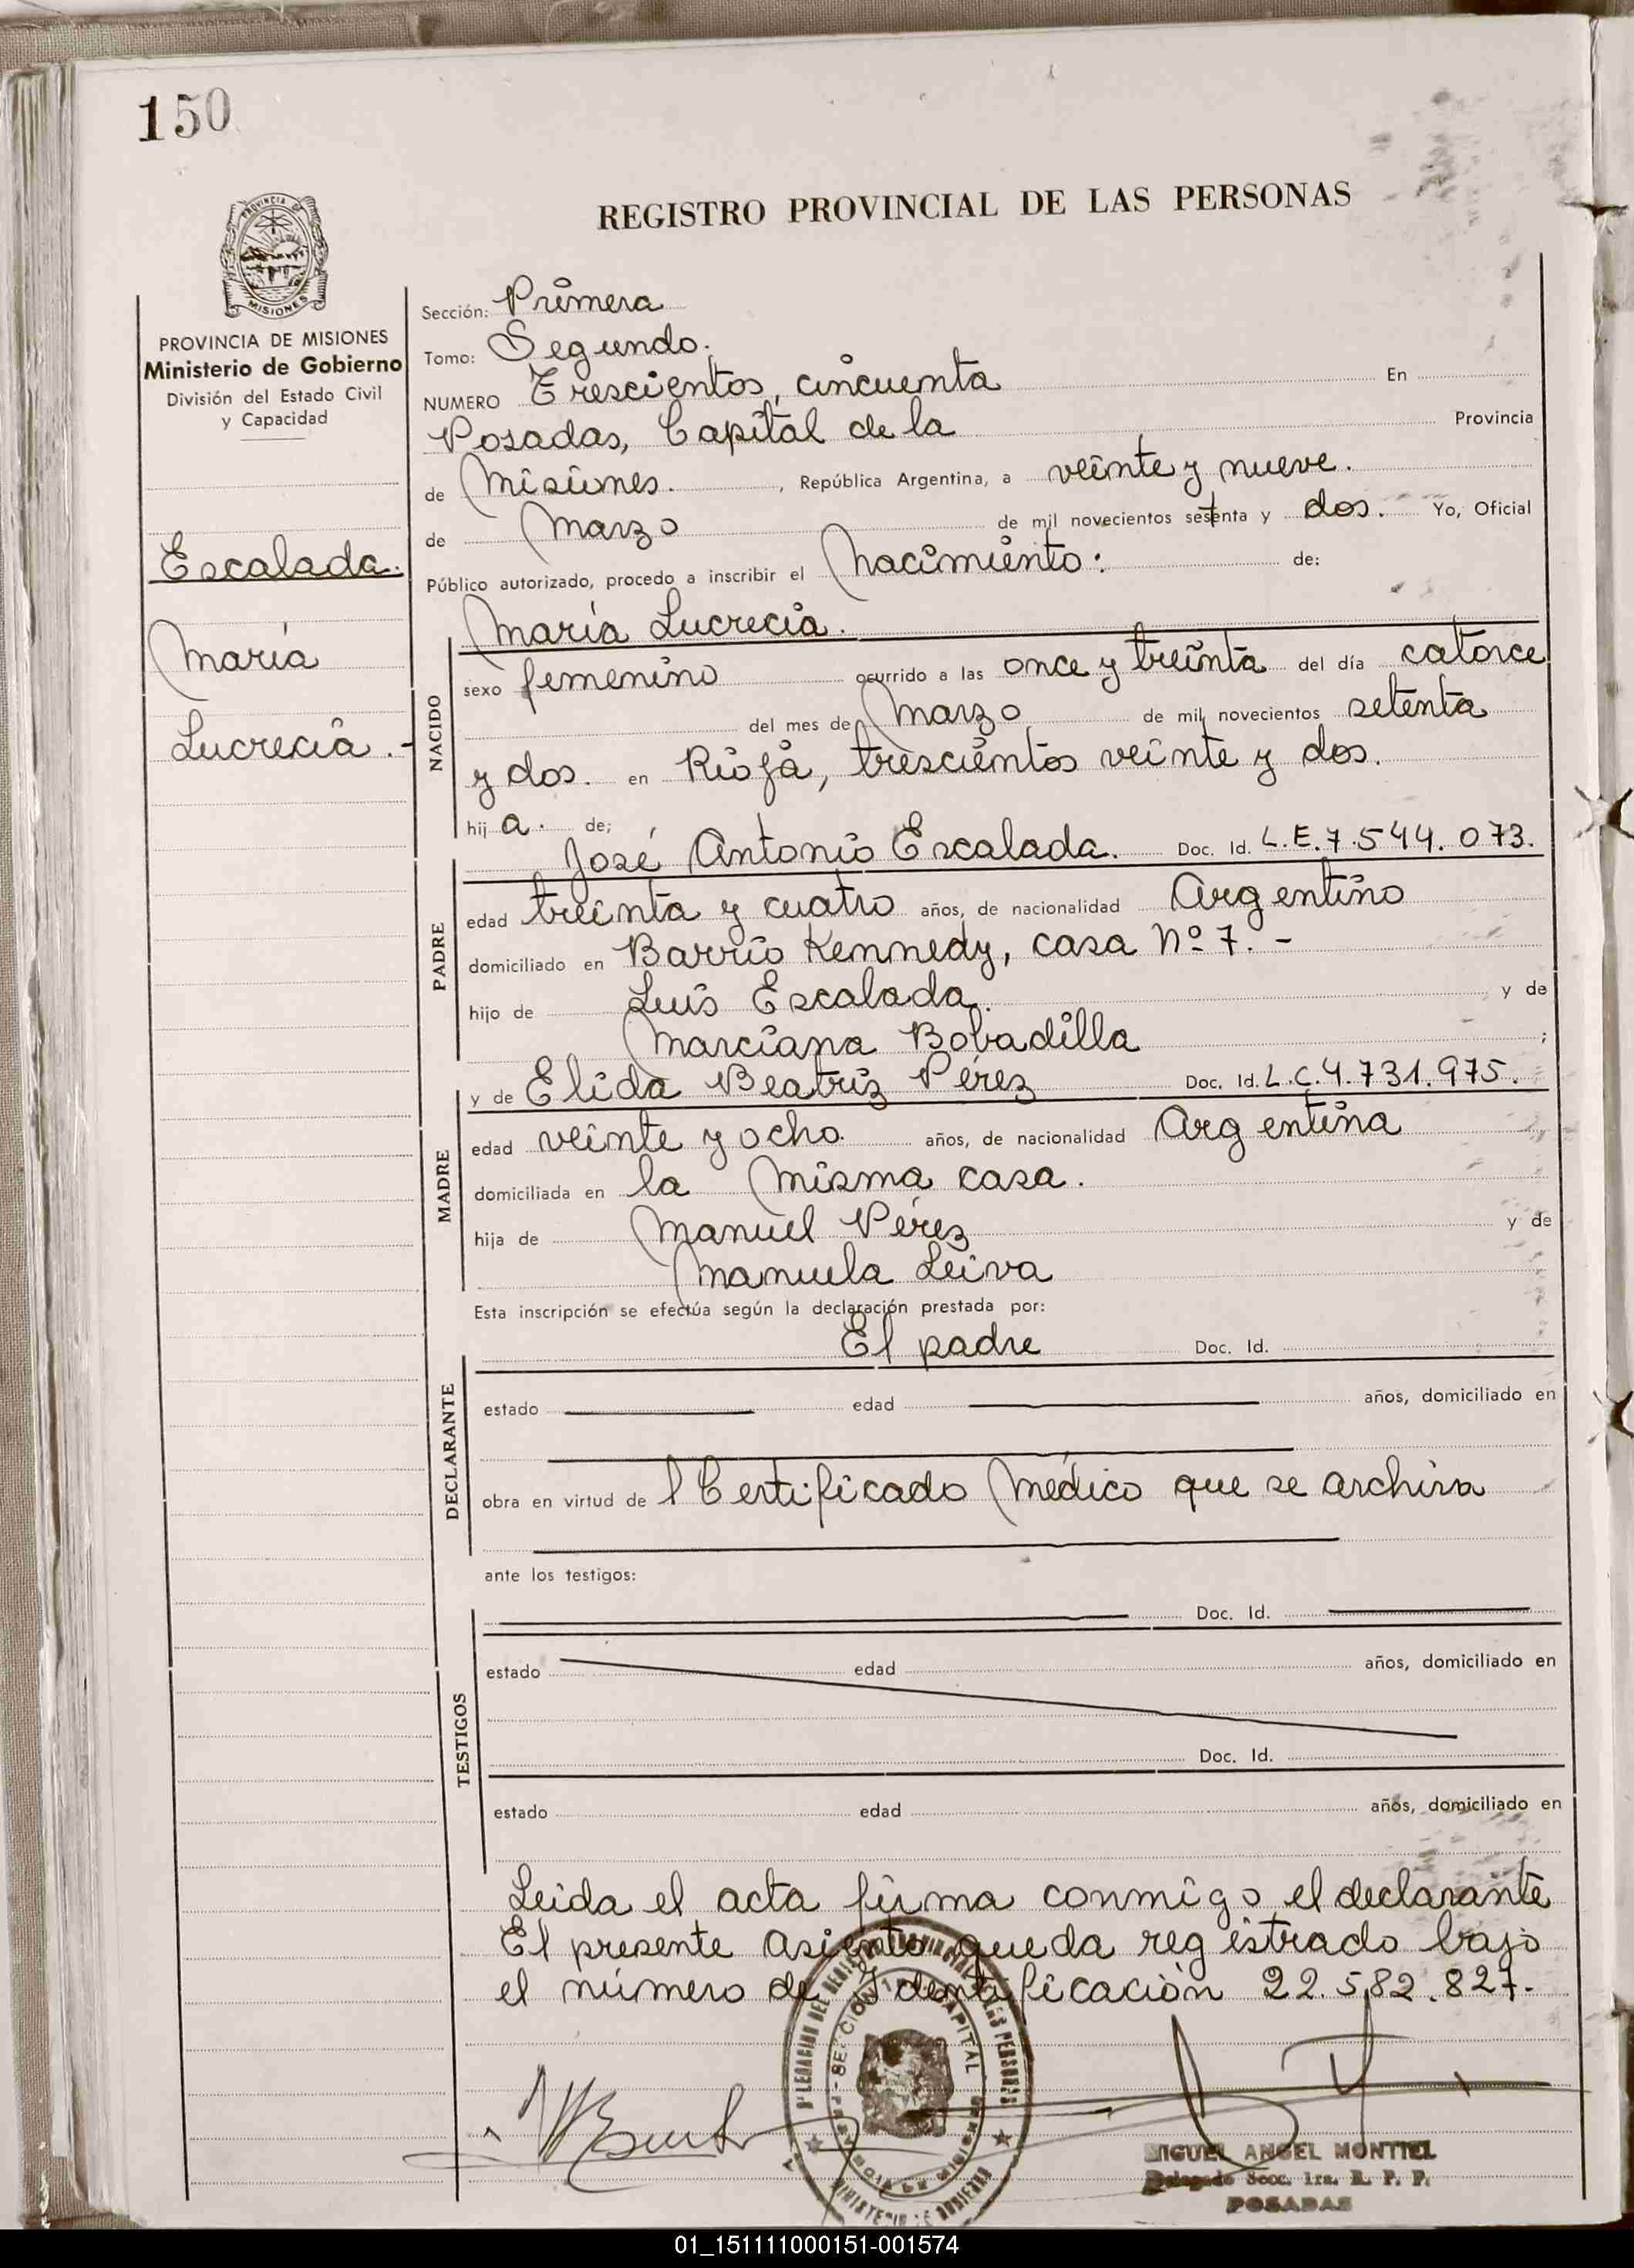 150
REGISTRO PROVINCIAL DE LAS PERSONAS
PROVINCIA DE
MISIONES
PROVINCIA DE MISIONES
Ministerio de Gobierno
División del Estado Civil
y Capacidad
Escalada.
María
Lucrecia.-
Sección: Primera
Tomo: Segundo.
NUMERO Trescientos, cincuenta En
Posadas, Capital de la Provincia
de Misiones. , República Argentina, a veinte y nueve.
de Marzo de mil novecientos setenta y dos. Yo, Oficial
Público autorizado, procedo a inscribir el Nacimiento: de:
NACIDO
María Lucrecia.
sexo femenino ocurrido a las once y treinta del día catorce
del mes de Marzo de mil novecientos setenta
y dos. en Rioja, trescientos veinte y dos.
hij a. de;
PADRE
José Antonio Escalada. Doc. Id. L.E.7.544.073.
edad treinta y cuatro años, de nacionalidad Argentino
domiciliado en Barrio Kennedy, casa Nº 7.-
hijo de Luis Escalada. y de
Marciana Bobadilla ;
MADRE
y de Elida Beatriz Pérez Doc. Id. L.C.4.731.975.
edad veinte y ocho años, de nacionalidad Argentina
domiciliada en la misma casa.
hija de Manuel Pérez y de
Manuela Leiva
Esta inscripción se efectúa según la declaración prestada por:
DECLARANTE
El padre Doc. Id.
estado edad años, domiciliado en
obra en virtud de l Certificado Médico que se archiva
ante los testigos:
TESTIGOS
Doc. Id.
estado edad años, domiciliado en
Doc. Id.
estado edad años, domiciliado en
Leida el acta firma conmigo el declarante
El presente asiento queda registrado bajo
el número de Identificación 22.582.827.
MIGUEL ANGEL MONTIEL
Delegado Secc. 1ra. R. P. P.
POSADAS
01_151111000151-001574